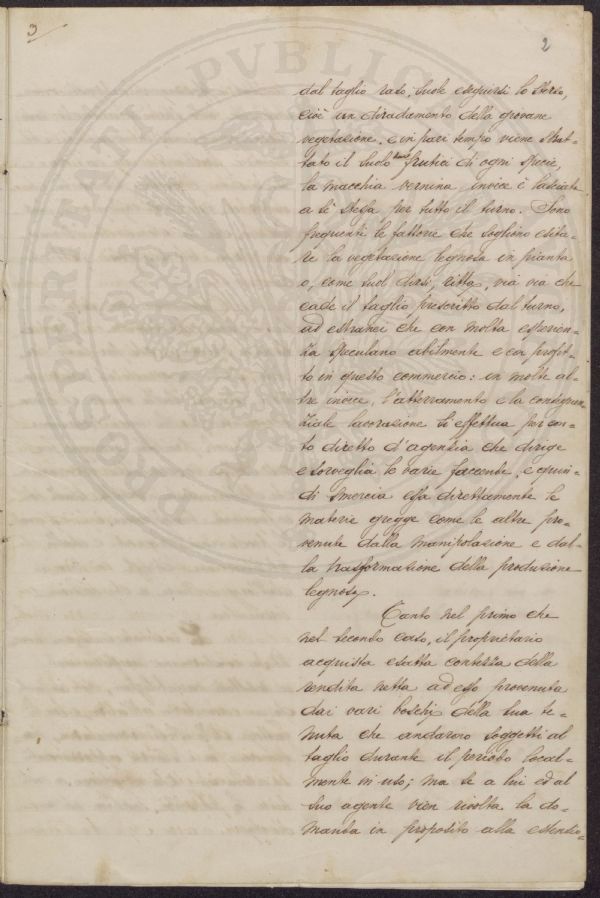 3
2
dal taglio raso, suole eseguirsi lo sterzo,
cioè un diradamento della giovane
vegetazione, e in pari tempo viene sbat-
tato il suolo dai frutici di ogni specie,
la macchia vernina invece è lasciata
a sè stessa per tutto il turno. Sono
frequenti le fattorie che sogliono esita-
re la vegetazione legnosa in pianta
o, come suol dirsi, ritta, via via che
cade il taglio prescritto dal turno,
ad estranei che con molta esperien-
za speculano abilmente e con profit-
to in questo commercio: in molte al-
tre invece, l'atterramento e la conseguen-
ziale lavorazione si effettua per con-
to diretto d'agenzia che dirige
e sorveglia le varie faccende, e quin-
di smercia essa direttamente le
materie gregge come le altre pro-
venute dalla manipolazione e dal-
la trasformazione della produzione
legnosa.
Tanto nel primo che
nel secondo caso, il proprietario
acquista esatta contezza della
rendita netta ad esso provenuta
dai vari boschi della sua te-
nuta che andarono soggetti al
taglio durante il periodo local-
mente in uso; ma se a lui ed al
suo agente vien rivolta la do-
manda in proposito alla estensio-
PVBLICAE
PROSPERITATI